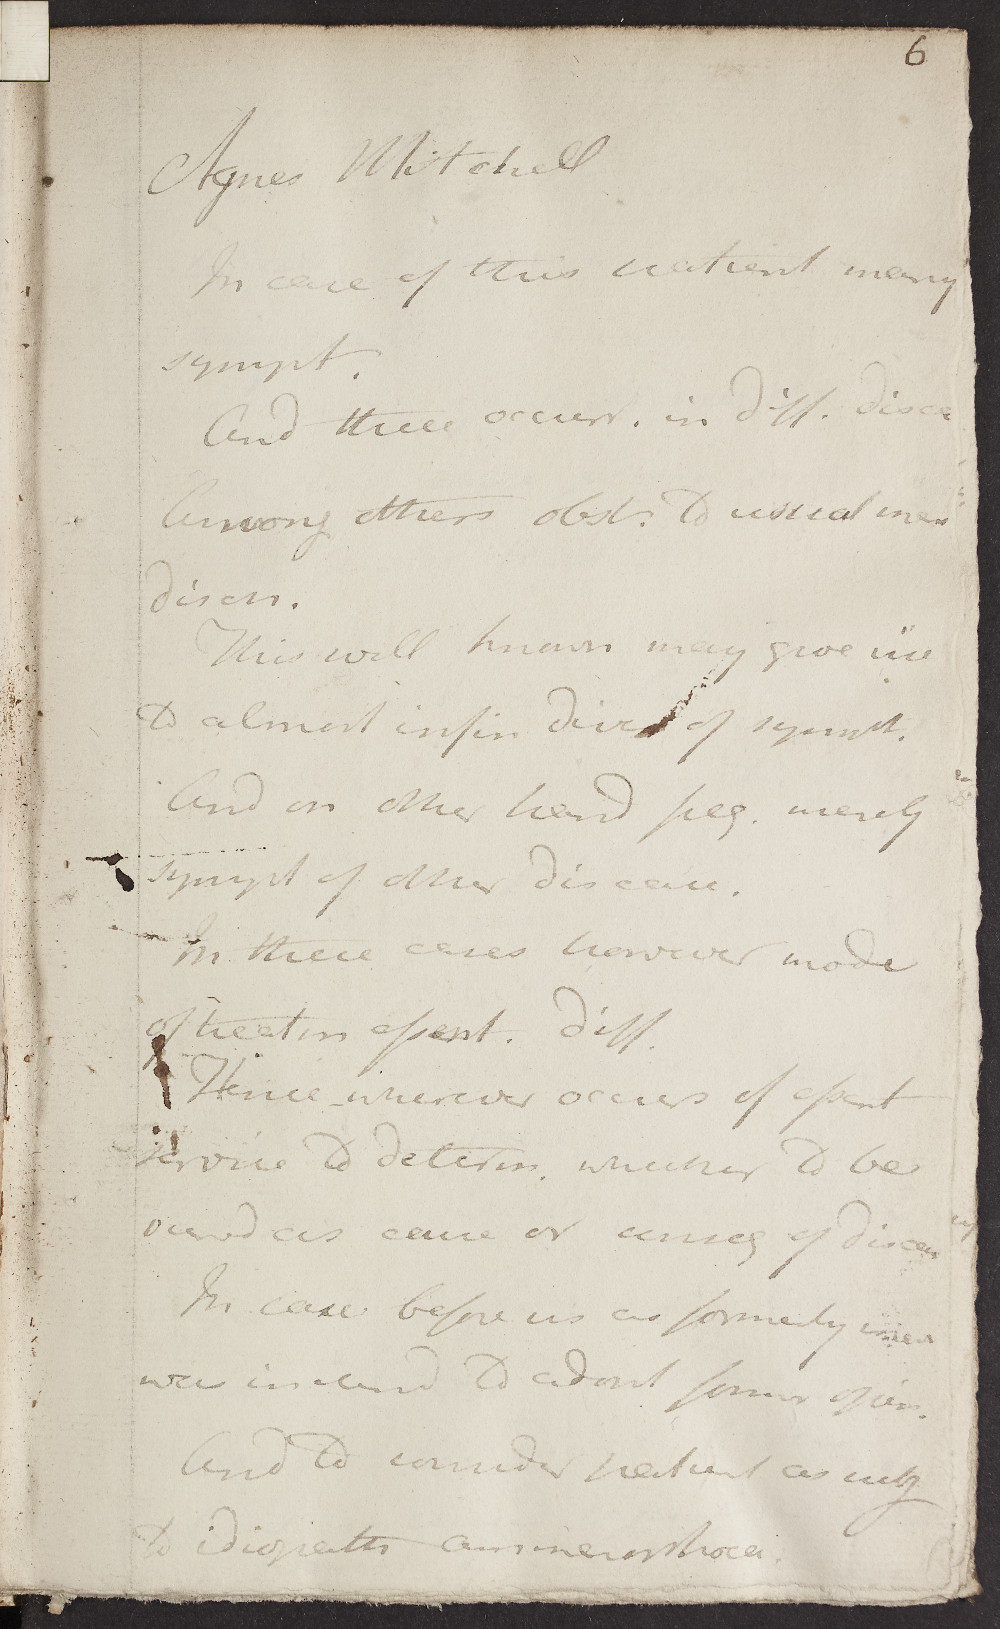 6
Agnes Mitchell
In case of this patient many
sympt.
And these occurr. in diff. disea
Among others obst. to usual men
discn.
This well known may give rise
to almost infin diver of sympt.
And on other hand freq. merely
sympt of other disease.
In these cases however mode
of treatm essent. diff.
Hence wherever occurs of essent
service to determ. whether to be
viewd as cause or conseq of diseas
In case before us as formerly
was inclind to adopt former opin.
And to consider patient as subj
to idiopath ammenorrhoea.